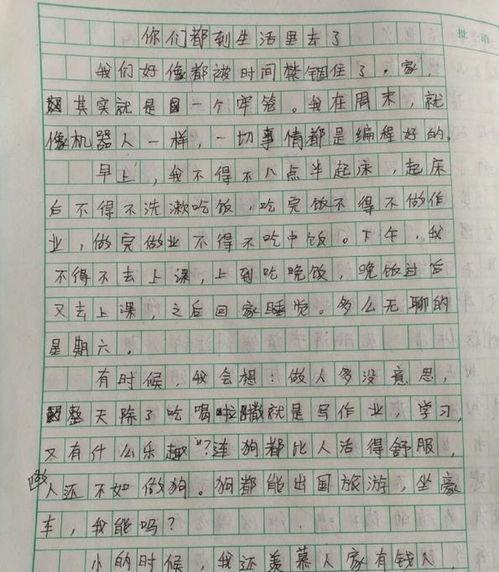 你们都到生活里去了
我们好像都被时间禁锢住了。家，
其实就是一个牢笼。我在周末，就
像机器人一样，一切事情都是编程好的。
早上，我不得不八点半起床，起床
后不得不洗漱吃饭，吃完饭不得不做作
业，做完做业不得不吃中饭。下午，我
不得不去上课，上到吃晚饭，晚饭过后
又去上课，之后回家睡觉。多么无聊的
星期六。
有时候，我会想：做人多没意思，
整天除了吃喝拉撒就是写作业，学习，
又有什么乐趣"？连狗都比人活得舒服，
做人还不如做狗。狗都能出国旅游，坐豪
车，我能吗？
小的时候，我还羡慕人家有钱人，